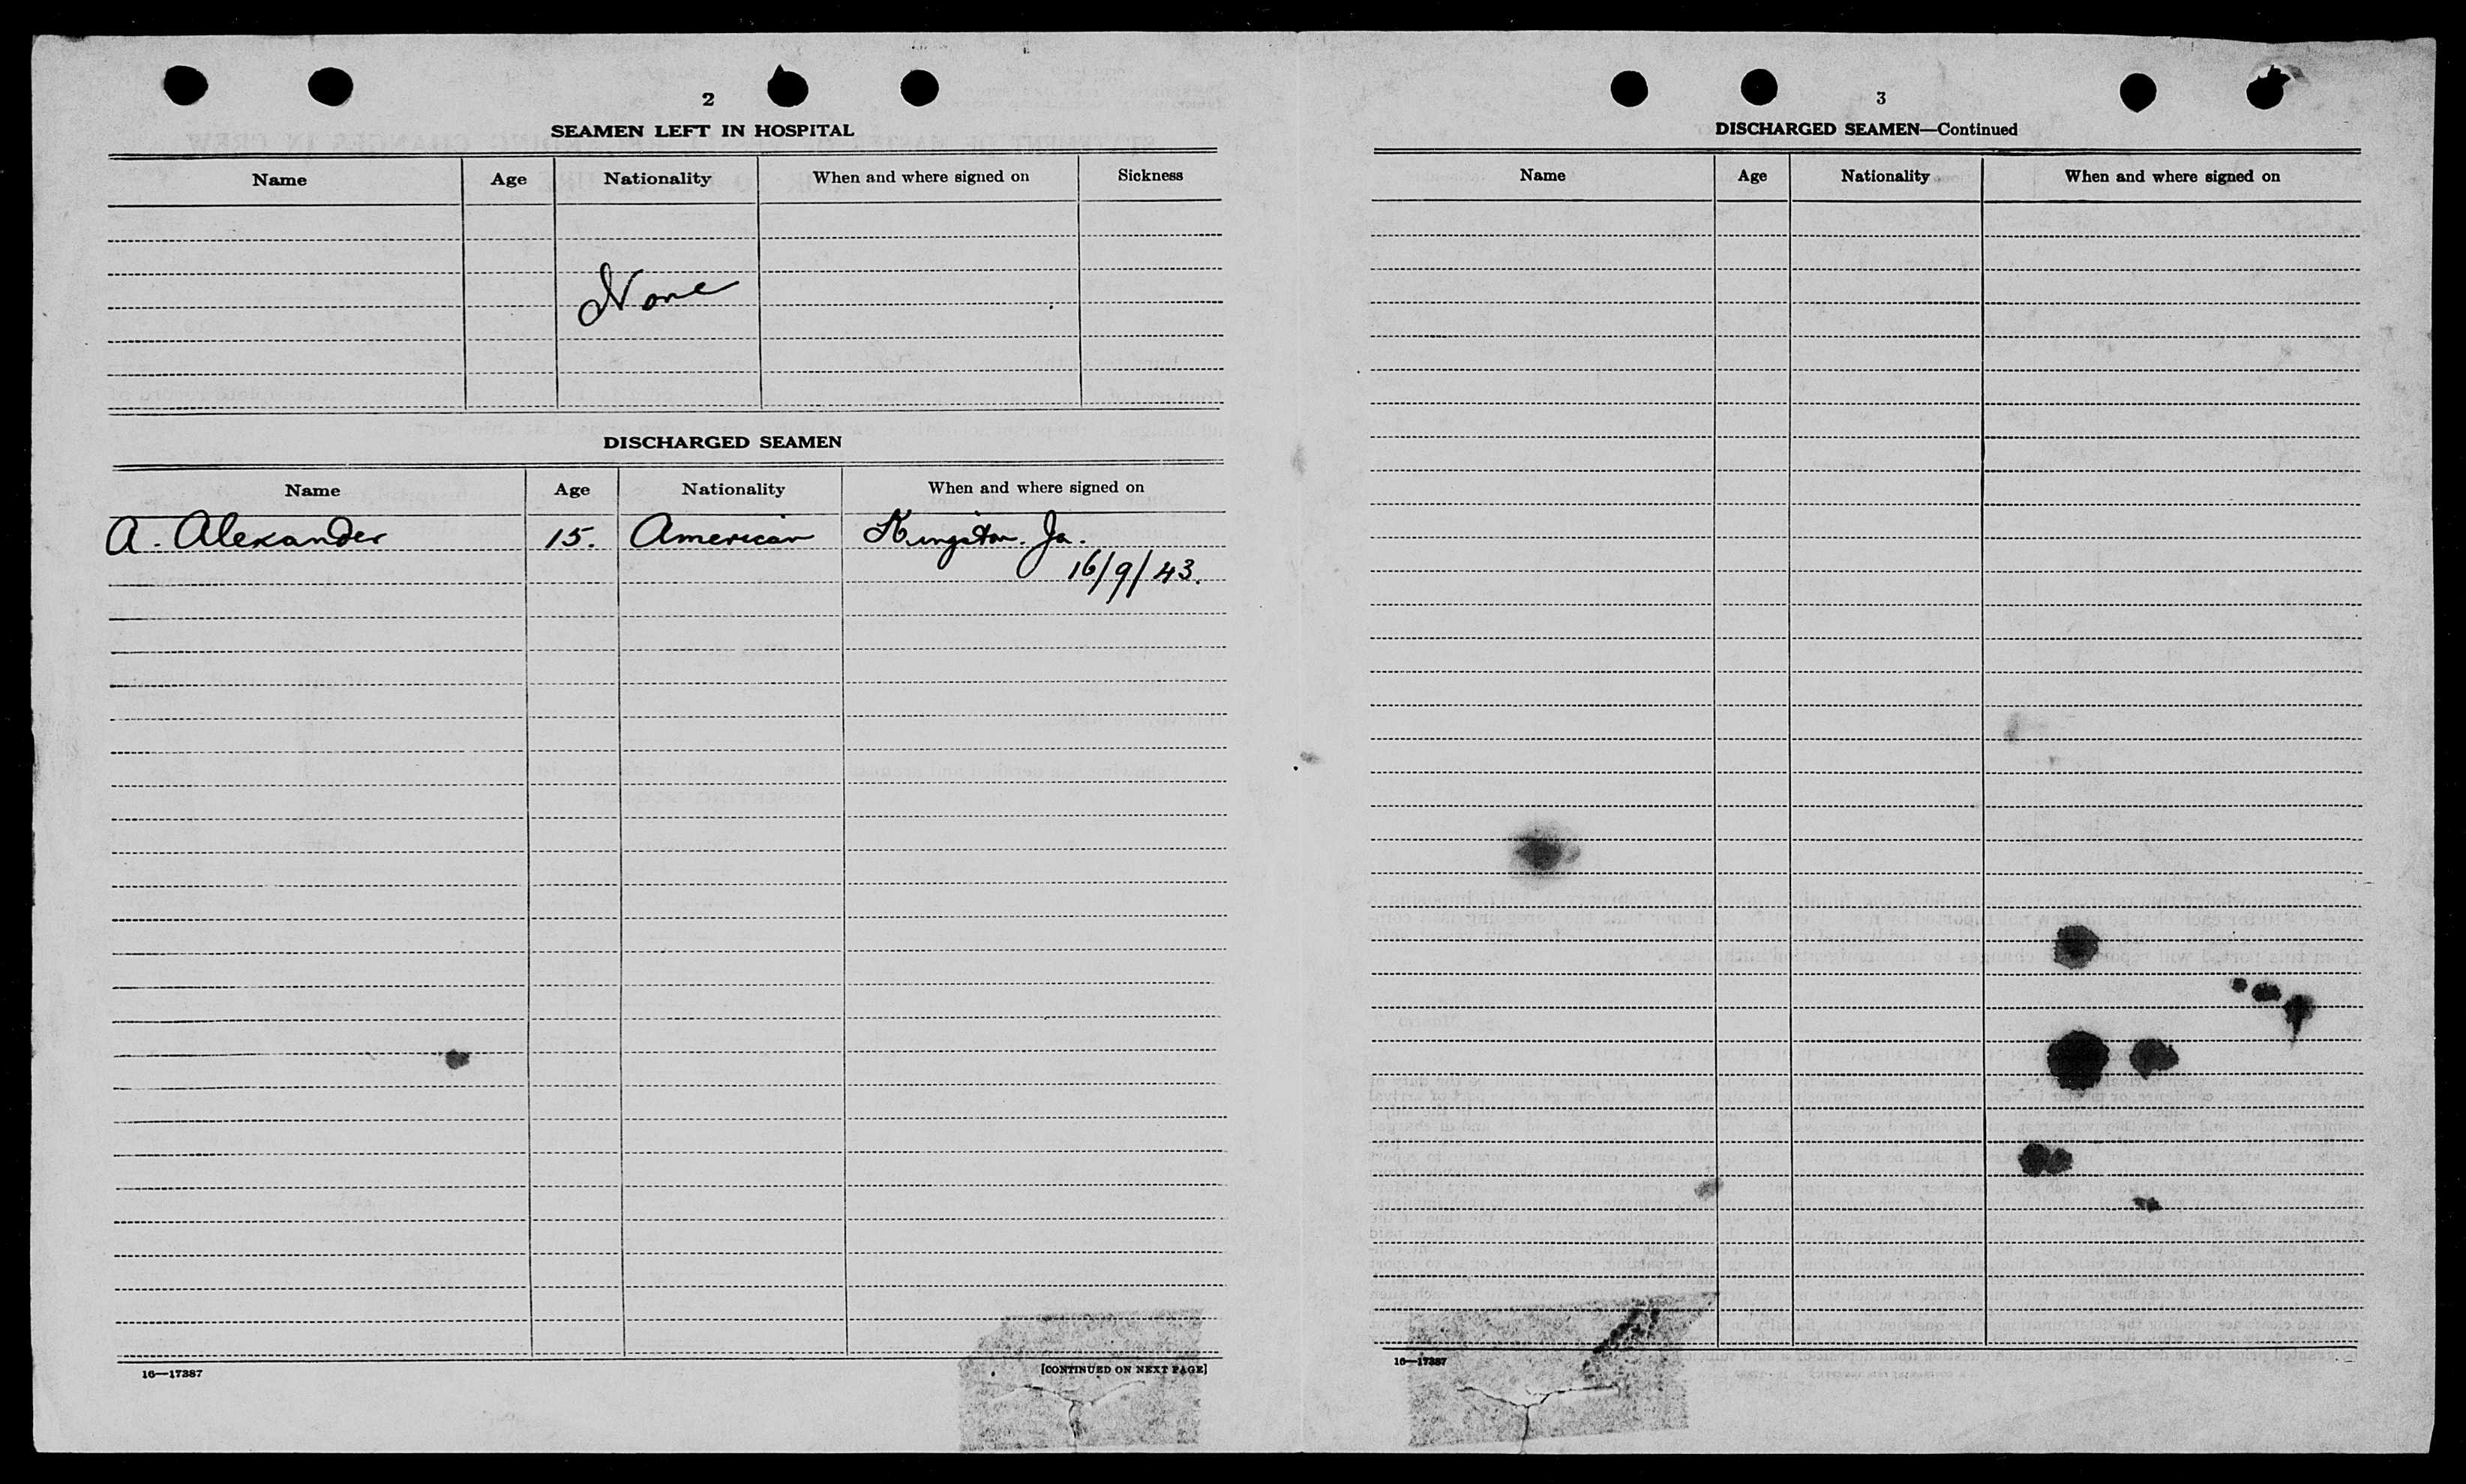 2
SEAMEN LEFT IN HOSPITAL
Name Age Nationality When and where signed on Sickness
None
DISCHARGED SEAMEN
Name Age Nationality When and where signed on
A. Alexander 15. American Kingston. Ja.
16/9/43.
16—17387 [CONTINUED ON NEXT PAGE]
3
DISCHARGED SEAMEN—Continued
Name Age Nationality When and where signed on
16—17387